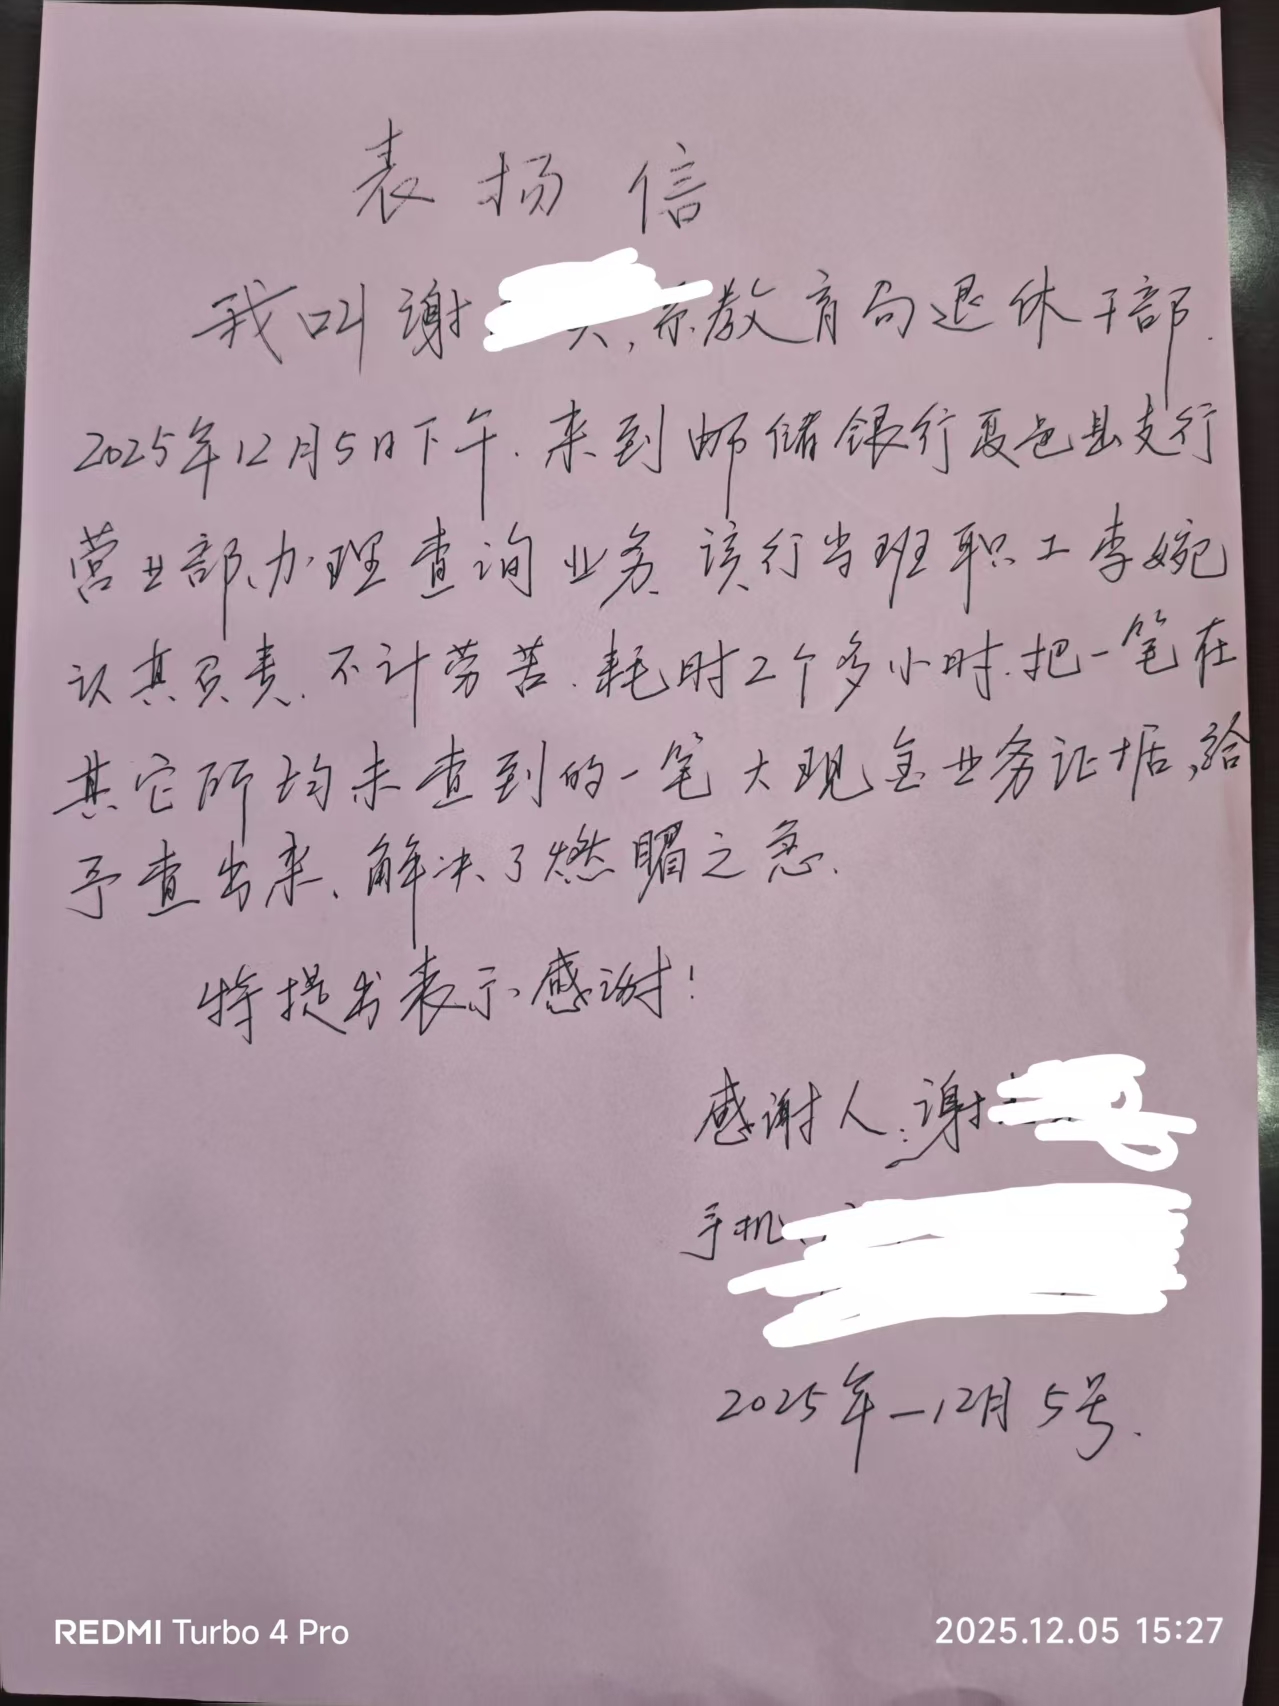 表扬信
我叫谢 系教育局退休干部.
2025年12月5日下午.来到邮储银行夏邑县支行
营业部、办理查询业务.该行当班职工李婉
认真负责.不计劳苦.耗时2个多小时.把一笔在
其它所均未查到的一笔大现金业务证据,给
予查出来、解决了燃眉之急.
特提出表示感谢!
感谢人:谢
手机
2025年-12月5号.
REDMI Turbo 4 Pro
2025.12.05 15:27